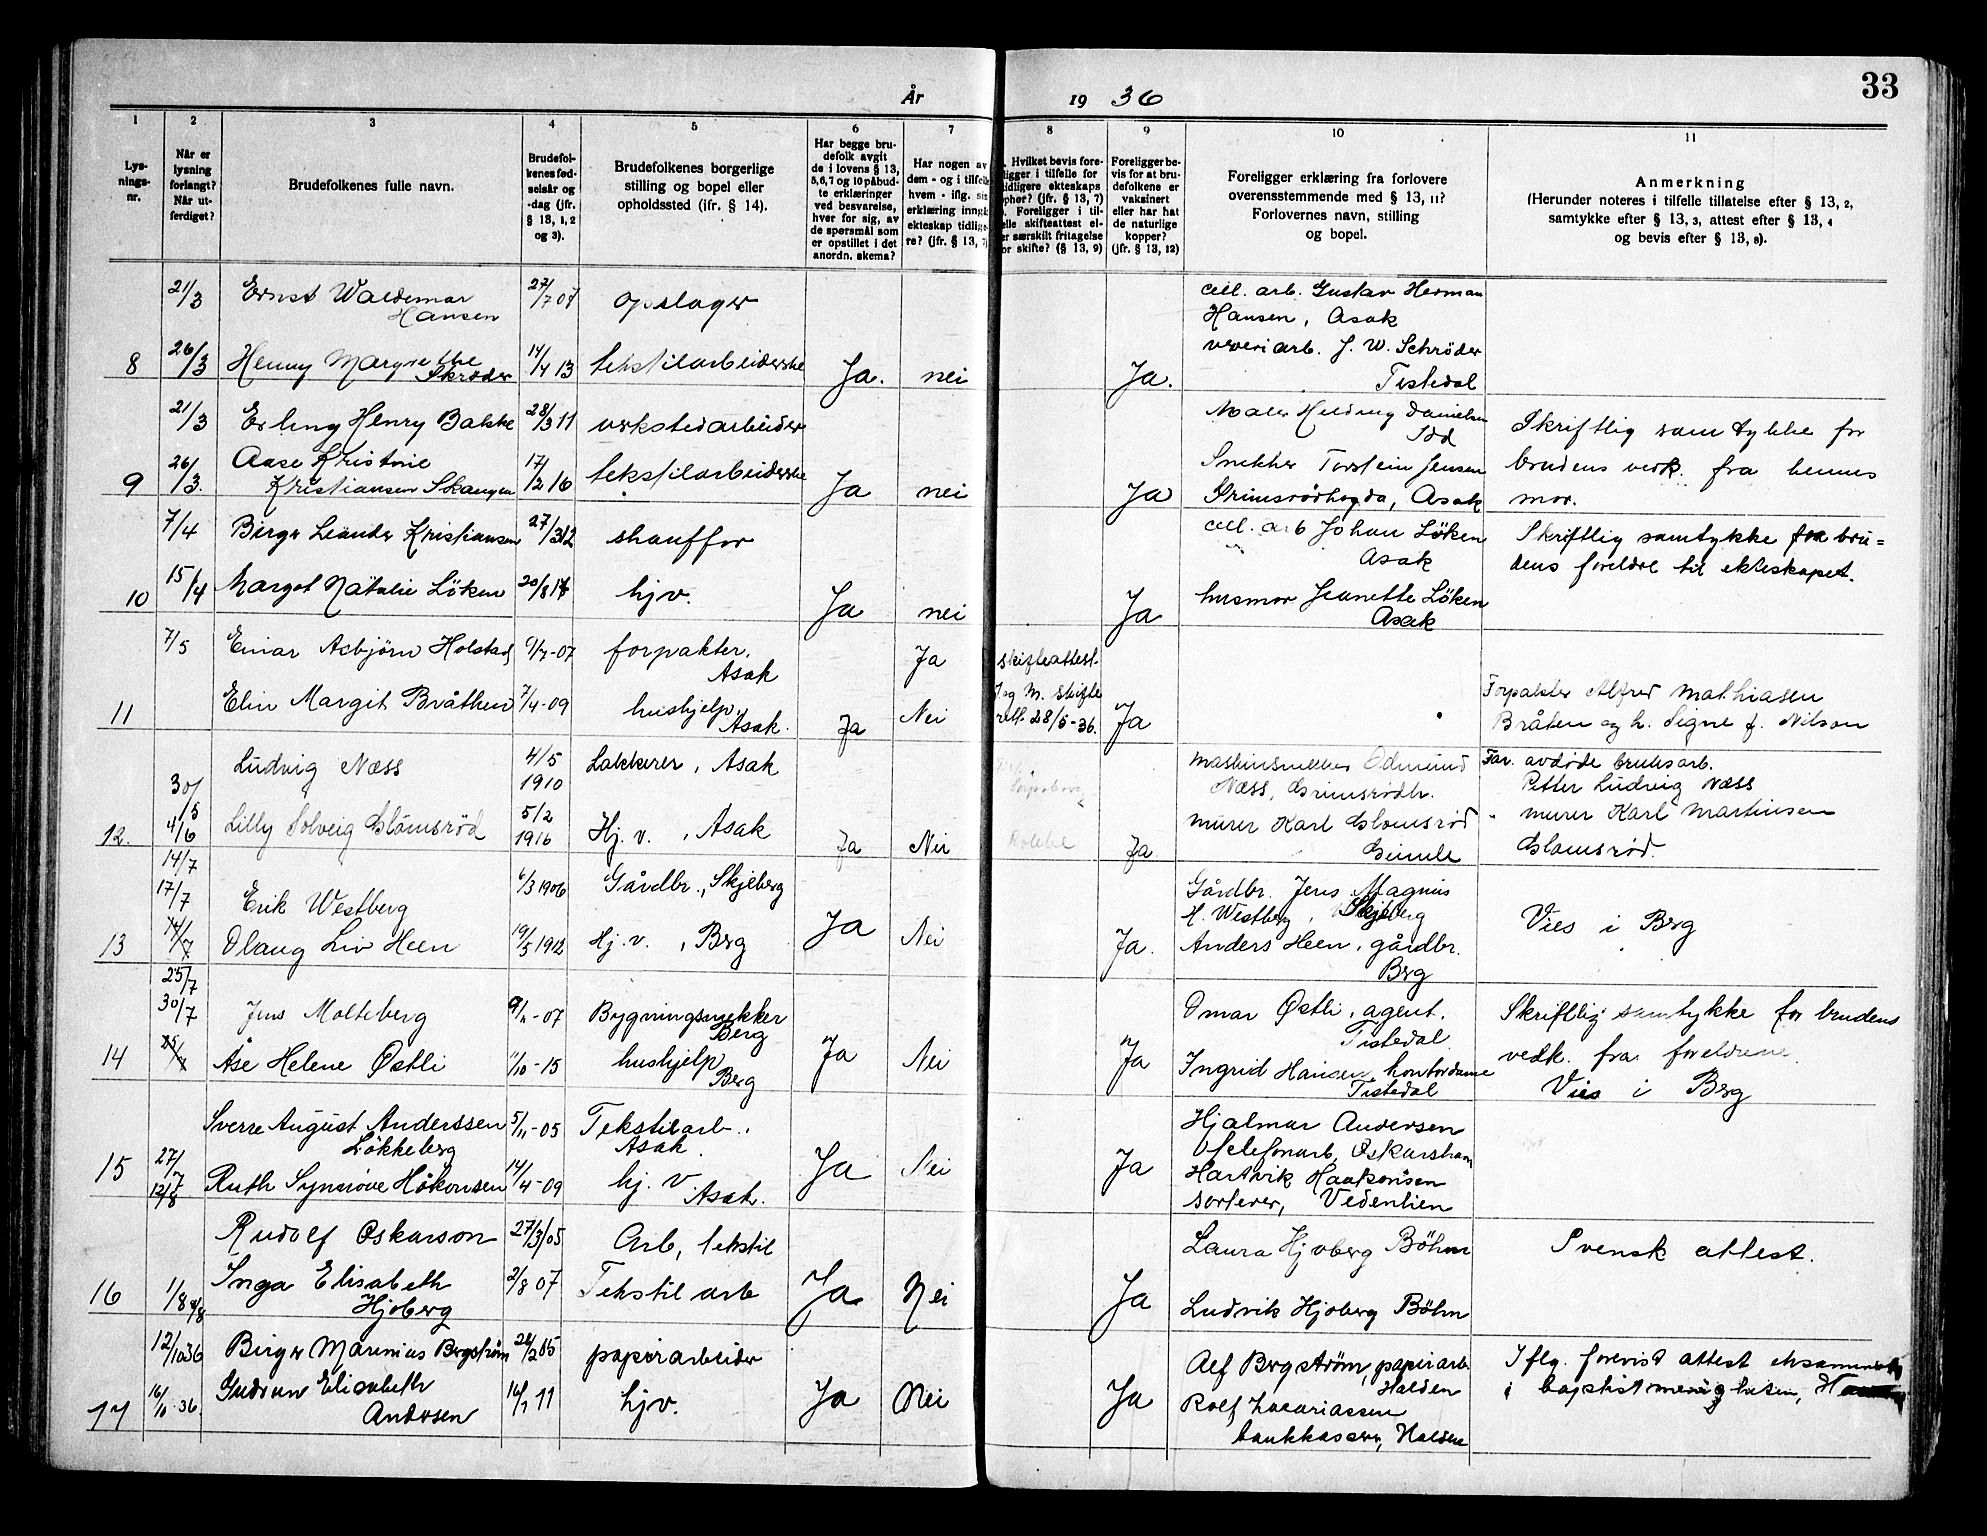 33
År 1936
1 2 3 4 5 6 7 8 9 10 11
Lys-
nings-
nr.
Når er
lysning
forlangt?
Når ut-
ferdiget?
Brudefolkenes fulle navn.
Brudefol-
kenes fød-
selsår og
-dag (jfr.
§ 13, 1, 2
og 3).
Brudefolkenes borgerlige
stilling og bopel eller
opholdssted (jfr. § 14).
Har begge bru-
defolk avgit
de i lovens § 13,
5, 6, 7 og 10 påbud-
te erklæringer
ved besvarelse,
hver for sig, av
de spørsmål som
er opstillet i det
anordn. skema?
Har nogen av
dem - og i tilfelle
hvem - iflg. sin
erklæring inngå
ekteskap tidlige-
re? (jfr. § 13, 7)
Hvilket bevis fore-
ligger i tilfelle for
tidligere ekteskaps
ophør? (jfr. § 13, 7)
Foreligger i til-
felle skifteattest el-
er særskilt fritagelse
for skifte? (§ 13, 9)
Foreligger be-
vis for at bru-
defolkene er
vaksinert
eller har hat
de naturlige
kopper?
(jfr. § 13, 12)
Foreligger erklæring fra forlovere
overensstemmende med § 13, 11?
Forlovernes navn, stilling
og bopel.
Anmerkning
(Herunder noteres i tilfelle tillatelse efter § 13, 2,
samtykke efter § 13, 3, attest efter § 13, 4
og bevis efter § 13, 8).
21/3 Ernst Waldemar
Hansen 27/7 07 opslager
cell. arb. Gustav Herman
Hansen, Asak
8 26/3 Henny Margrethe
Skrøder 14/4 13 tekstilarbeiderske Ja. nei Ja.
veveriarb. J. W. Schrøder
Tistedal
21/3 Erling Henry Bakke 28/3 11 verkstedarbeider
Maler Hilding Danielsen
Idd
Skriftlig samtykke for
9 26/3. Aase Kristine
Kristiansen Skaugen 17/2 16 tekstilarbeiderske Ja nei Ja
Snekker Torstein Jensen
Grimsrødhøgda, Asak
brudens vedk. fra hennes
mor.
7/4 Birger Leander Kristiansen 27/3 12 shauffør
cell. arb Johan Løken
Asak
Skriftlig samtykke fra bru=
dens foreldre til ekteskapet.
10 15/4 Margot Natalie Løken 20/8 hjv. Ja nei Ja
husmor Jeanette Løken
Asak
7/5 Einar Asbjørn Holstad 6/7-07 forpakter,
Asak Ja
skifteattest.
11 Elin Margit Bråthen 7/4-09 hushjelp,
Asak. Ja Nei
Idd og M. skifte
rett. 28/5-36. Ja
Forpakter Alfred Mathiasen
Bråten og h. Signe f. Nilson
30/5 Ludvig Næss 4/5
1910 Lakkerer, Asak
Maskinsmelter Edmund
Næss, Grimsrødh.
Far. avdøde bruksarb.
Petter Ludvig Næss
12. 4/6 Lilly Solveig Glomsrød 5/2
1916 Hj. v., Asak Ja Nei Ja
murer Karl Glomsrød
Gimle
" murer Karl Martinsen
Glomsrød.
14/7
17/7 Erik Westberg 6/3 1906 Gårdbr., Skjeberg
Gårdbr. Jens Magnus
H. Westberg, Skjeberg
Vies i Berg
13 14/7 Olaug Liv Heen 19/5 1912 Hj. v., Berg Ja Nei Ja.
Anders Heen, gårdbr.
Berg
25/7
30/7 Jens Molteberg 9/11-07 Bygningsnekker
Berg
Omar Østli, agent.
Tistedal
Skriftlig samtykke for brudens
14 25/7 Åse Helene Østli 11/10-15 hushjelp
Berg Ja Nei Ja
Ingrid Hansen, kontordame
Tistedal
vedk. fra foreldrene.
Vies i Berg
Sverre August Anderssen
Løkkeberg 5/11-05 Tekstilarb.,
Asak.
Hjalmar Andersen
Telefonarb, Oskarsham
15 27/7
12/8 Ruth Synnøve Håkonsen 14/4-09 hj. v.
Asak. Ja Nei Ja
Hartvik Haakonsen
sorterer, Vedenlien
Rudolf Oskarson 27/3/05 Arb, tekstil
Laura Hjoberg Böhm
Svensk attest.
16 1/8 4/8 Inga Elisabeth
Hjoberg 2/8 07 Tekstil arb Ja Nei Ja
Ludvik Hjoberg Böhm
12/10 36 Birger Marinius Bergstrøm 24/2 05 papirarbeider
Alf Bergstrøm, papirarb.
Halden
Iflg. forevist attest
i baptistmenigheten,
17 16/10 36. Gudrun Elisabeth
Andersen 16/7 11 hjv. Ja Nei Ja
Rolf Zacariassen
bankkasser, Halden